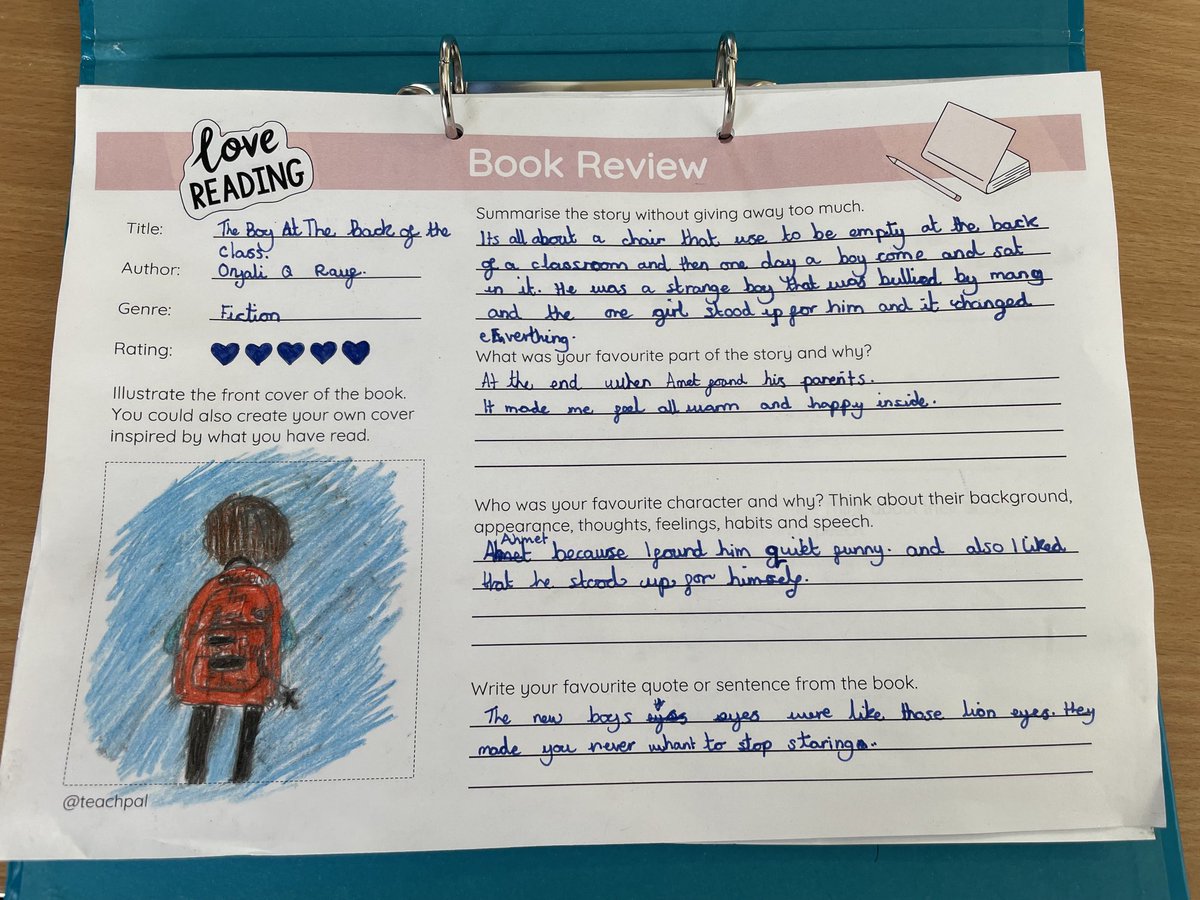 love
READING
Book Review
Title: The Boy At The Back of the
Class.
Author: Onjali Q Rauf.
Genre: Fiction
Rating:
Illustrate the front cover of the book.
You could also create your own cover
inspired by what you have read.
@teachpal
Summarise the story without giving away too much.
Its all about a chair that use to be empty at the back
of a classroom and then one day a boy come and sat
in it. He was a strange boy that was bullied by many
and the one girl stood up for him and it changed
everthing.
What was your favourite part of the story and why?
At the end when Amet found his parents.
It made me feel all warm and happy inside.
Who was your favourite character and why? Think about their background,
appearance, thoughts, feelings, habits and speech.
Ahmet because I found him quiet funny. and also I liked
that he stood up for himself.
Write your favourite quote or sentence from the book.
The new boys eyes were like those lion eyes. they
made you never whant to stop staring.